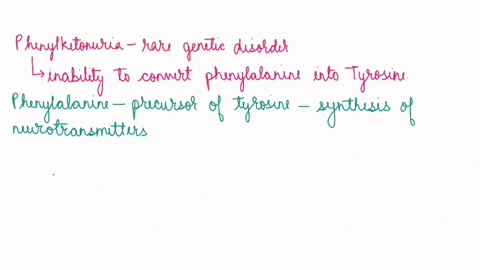 Phenylketonuria - rare genetic disorder
↳ inability to convert phenylalanine into Tyrosine.
Phenylalanine - precursor of tyrosine - synthesis of
neurotransmitters